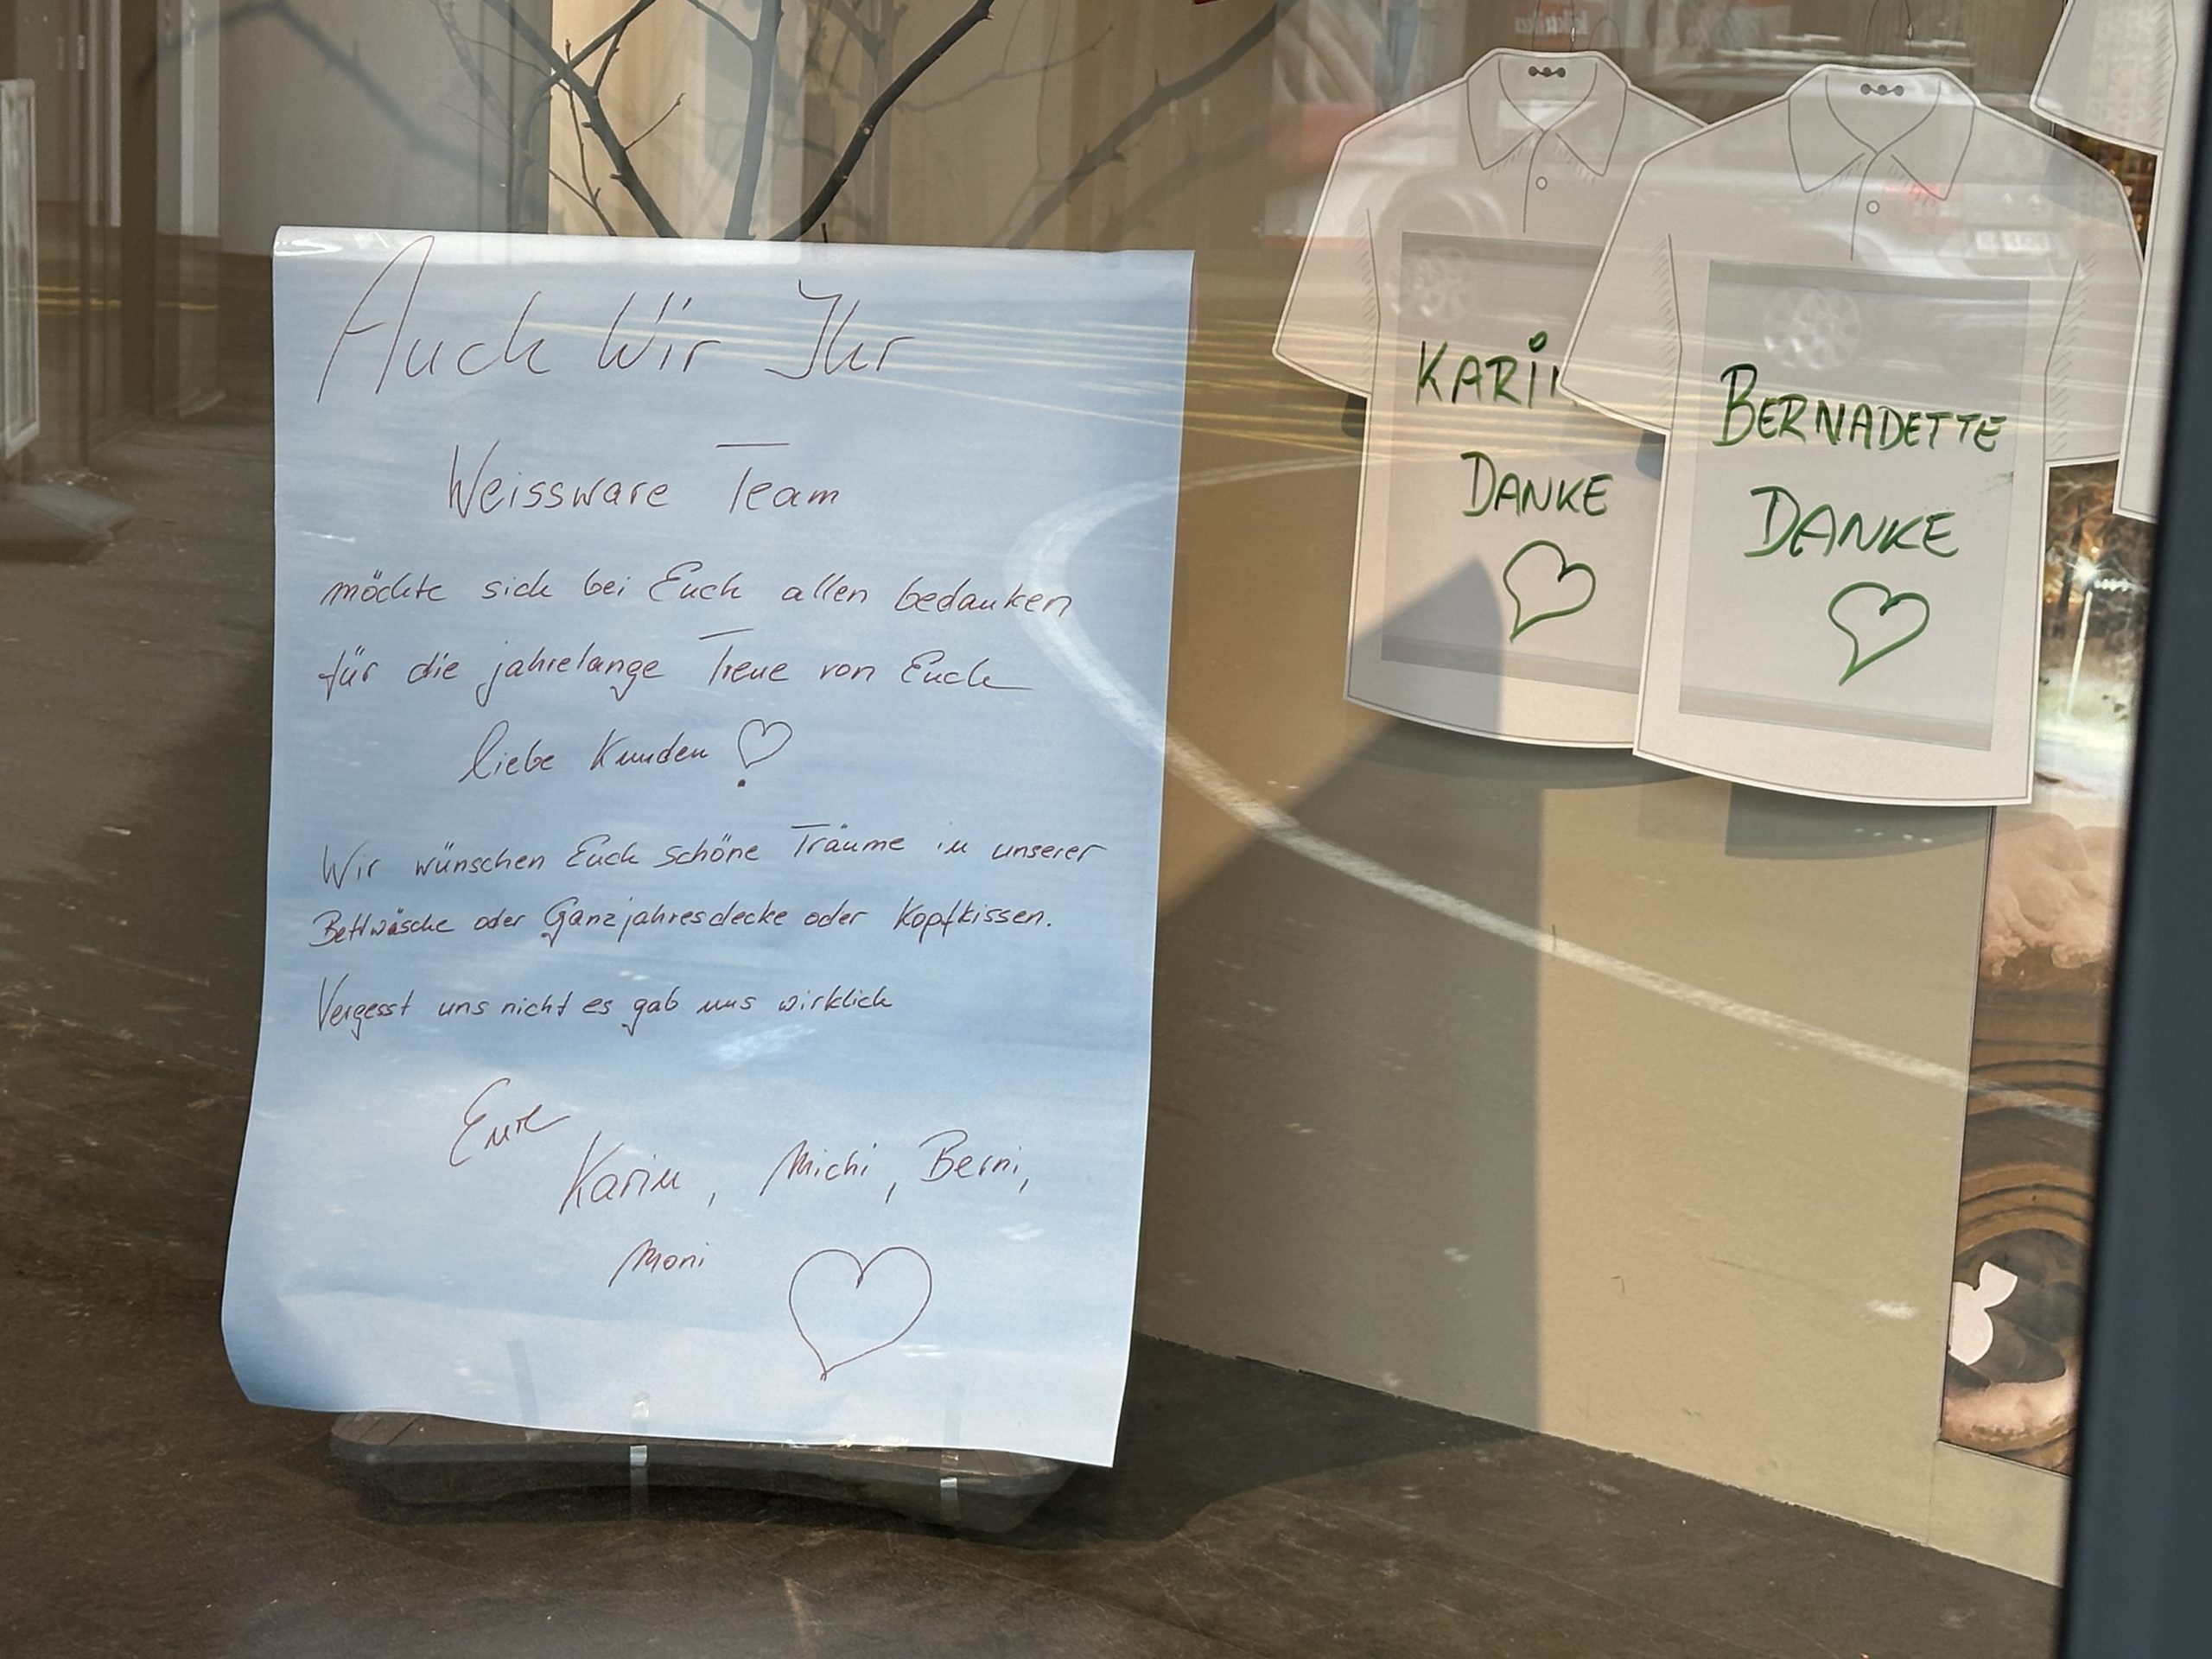 Auch Wir Ihr
Weissware Team
möchte sich bei Euch allen bedanken
für die jahrelange Treue von Euch
liebe Kunden
Wir wünschen Euch schöne Träume in unserer
Bettwäsche oder Ganzjahresdecke oder Kopfkissen.
Vergesst uns nicht es gab uns wirklich
Eure
Karin, Michi, Berni,
Moni
KARIN
DANKE
BERNADETTE
DANKE